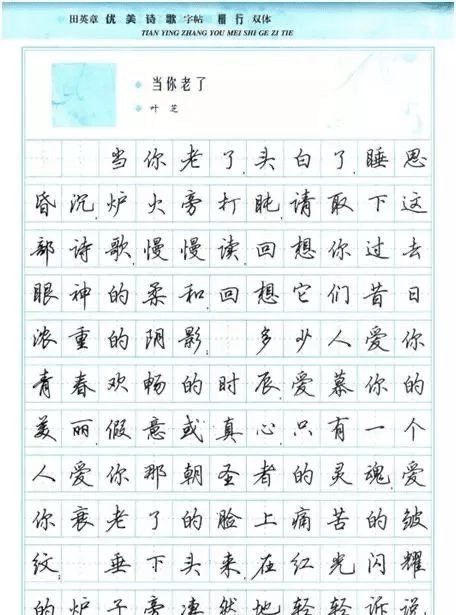 田英章 优美诗歌 字帖 楷行 双体
TIAN YING ZHANG YOU MEI SHI GE ZI TIE
当你老了
叶芝
当你老了,头白了,睡思
昏沉,炉火旁打盹,请取下这
部诗歌,慢慢读,回想你过去
眼神的柔和,回想它们昔日
浓重的阴影; 多少人爱你
青春欢畅的时辰,爱慕你的
美丽,假意或真心,只有一个
人爱你那朝圣者的灵魂,爱
你衰老了的脸上痛苦的皱
纹; 垂下头来,在红光闪耀
的炉子旁,凄然地轻轻诉说